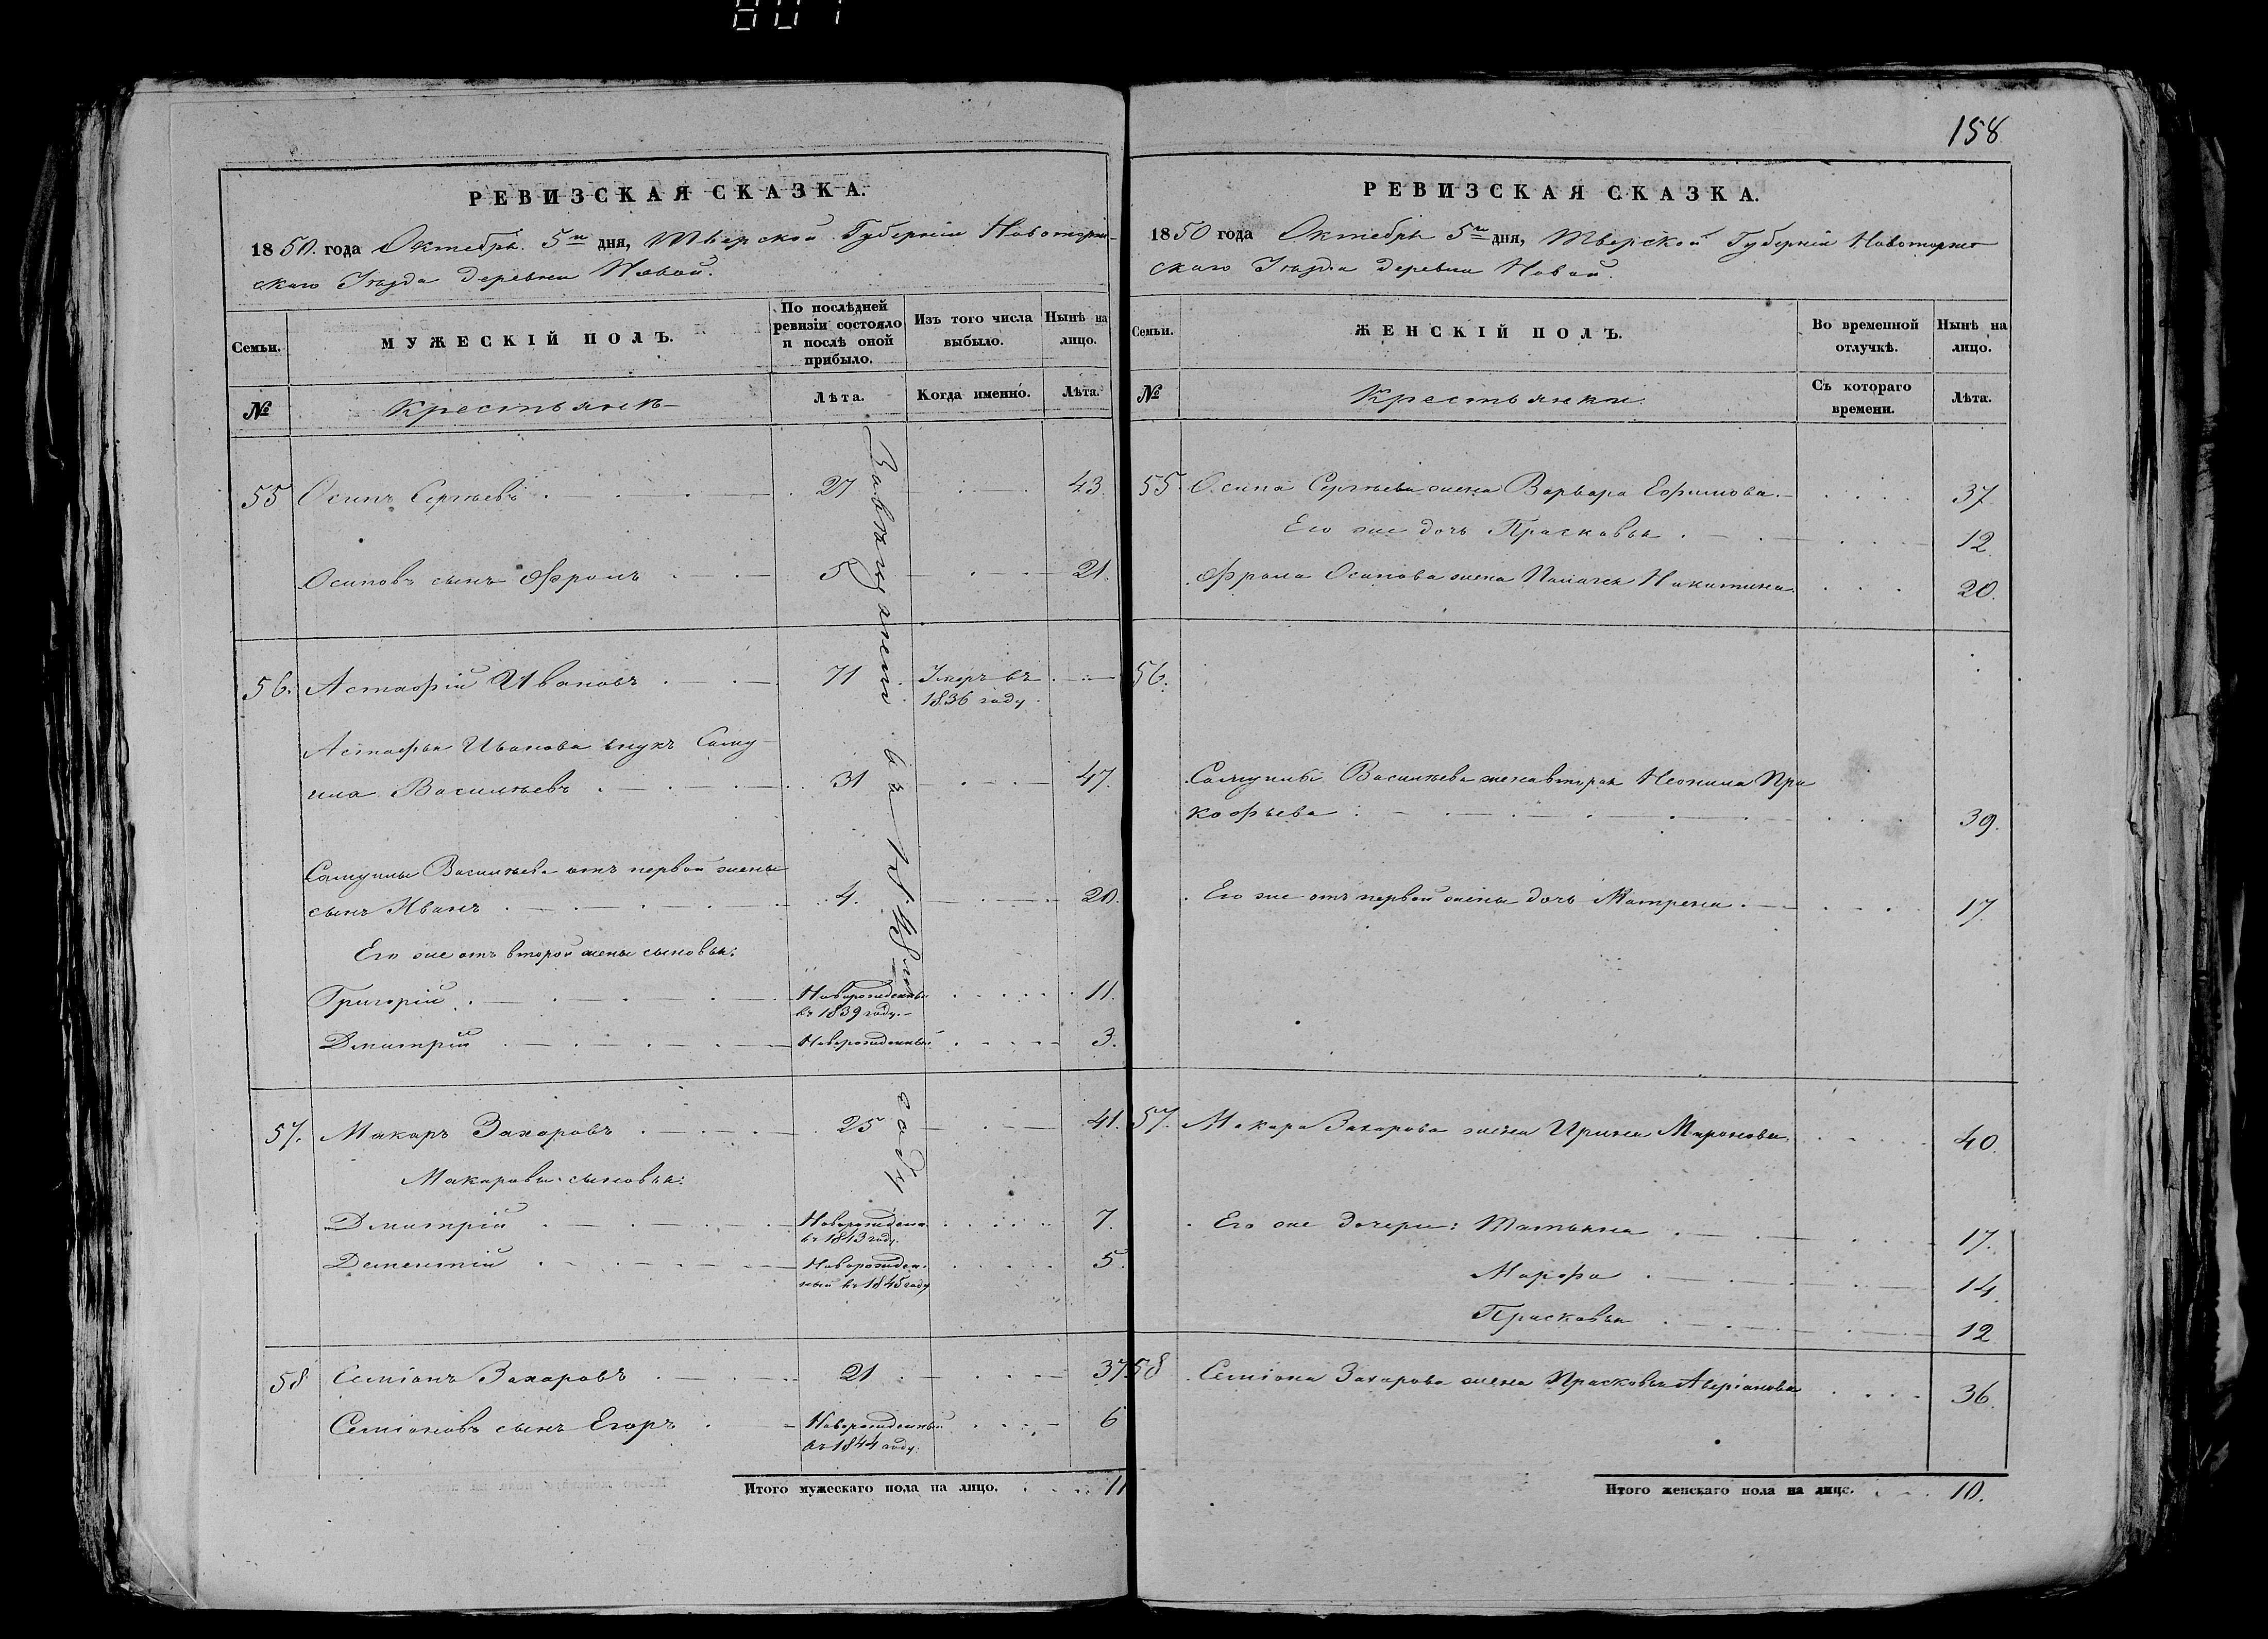 807
158
РЕВИЗСКАЯ СКАЗКА.
1850. года Октября 5го дня, Тверской Губерніи Новоторж-
скаго Уѣзда деревни Новой.
Семьи.
МУЖЕСКІЙ ПОЛЪ.
По послѣдней
ревизіи состояло
и послѣ оной
прибыло.
Изъ того числа
выбыло.
Нынѣ на
лицо.
№
Крестьянъ
Лѣта.
Когда именно.
Лѣта.
55 Осипъ Сергѣевъ 27 43.
Осиповъ сынъ Фролъ 5 21.
56. Астафій Ивановъ 71 Умеръ въ
1836 году.
Астафья Иванова внукъ Саму-
ила Васильевъ 31 47.
Самуилы Васильева отъ первой жены
сынъ Иванъ 4. 20.
Его же отъ второй жены сыновья:
Григорій Новорожденный 11.
въ 1839 году.
Дмитрій Новорожденный 3.
57. Макаръ Захаровъ 25 41.
Макаровы сыновья:
Дмитрій Новорожден. 7.
въ 1843 году.
Дементій Новорожден- 5
ный въ 1845 году
58 Семіонъ Захаровъ 21 37
Семіоновъ сынъ Егоръ Новорожденный 6
въ 1844 году.
въ 1848м году
Итого мужескаго пола на лицо. 11
РЕВИЗСКАЯ СКАЗКА.
1850 года Октября 5го дня, Тверской Губерніи Новоторж-
скаго Уѣзда деревни Новой.
Семьи.
ЖЕНСКІЙ ПОЛЪ.
Во временной
отлучкѣ.
Нынѣ на
лицо.
№
Крестьянки.
Съ котораго
времени.
Лѣта.
55. Осипа Сергѣева жена Варвара Ефимова 37
Его же дочь Прасковья 12.
Фрола Осипова жена Никитина 20.
56.
Самуилы Васильева жена вторая Неонила Про
кофьева 39.
Его же отъ первой жены дочь Матрена 17.
57. Макара Захарова жена Ирина Миронова 40.
Его же дочери: Татьяна 17.
Марфа 14
Прасковья 12
58 Семіона Захарова жена Прасковья Аверіанова 36.
Итого женскаго пола на лице. 10.